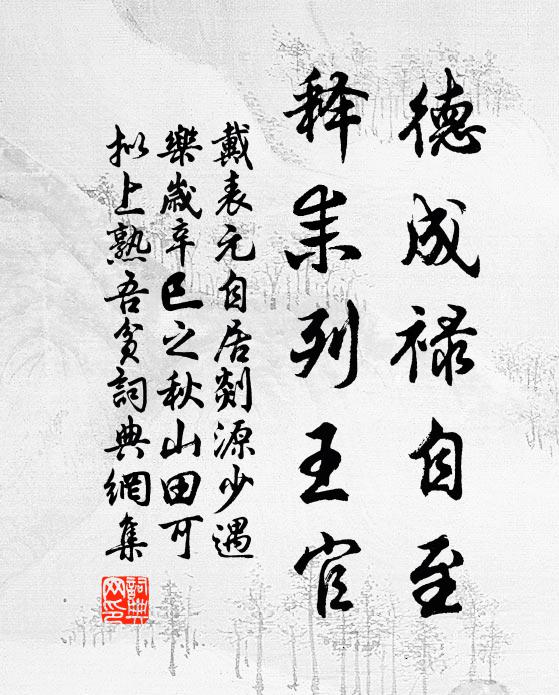 德成禄自至
释耒列王官
戴表元自居剡源少遇
樂歲辛巳之秋山田可
拟上熟吾貧詞典網集
詞典